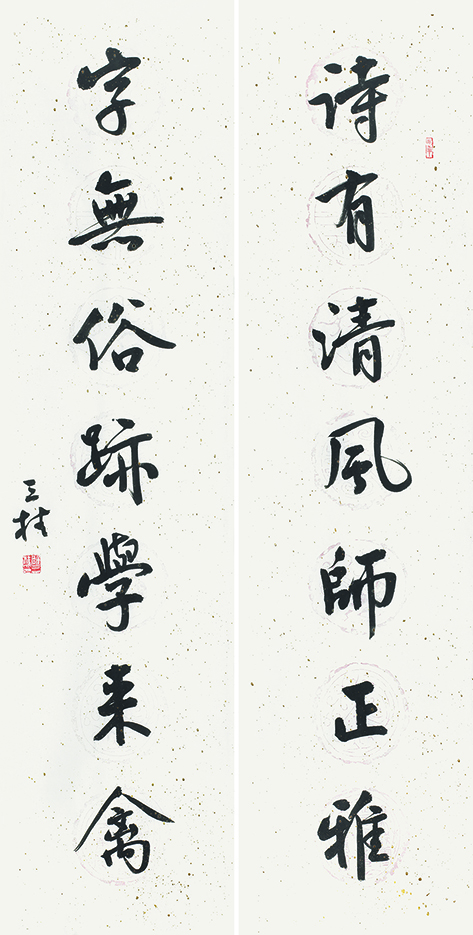 诗有清風師正雅
字無俗跡學来禽
三桂